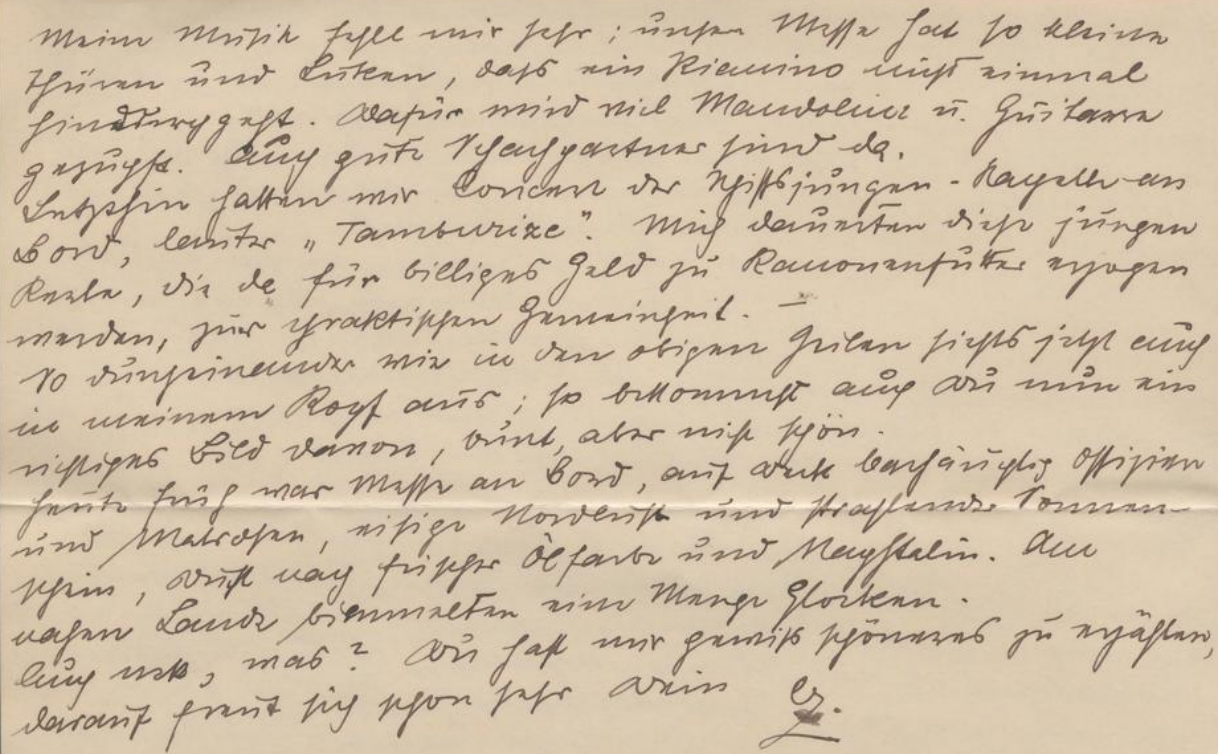 Meine Musik fehlt mir sehr; unsere Messe hat so kleine
Thüren und Luken, dass ein Pianino nicht einmal
hindurchgeht. Dafür wird viel Mandoline u. Guitarre
gezupft. Auch gute Schachpartner sind da.
Letzthin hatten wir Concert der Schiffsjungen-Kapelle an
Bord, lauter „Tamburize". Mich dauerten diese jungen
Kerle, die da für billiges Geld zu Kanonenfutter erzogen
werden, zur praktischen Gemeinheit. —
So durcheinander wie in den obigen Zeilen siehts jetzt auch
in meinem Kopf aus; so bekommst auch Du nun ein
richtiges Bild davon, bunt, aber nicht schön.
Heute früh war Messe an Bord, auf Deck Offiziere
und Matrosen, eisige Nordluft und strahlender Sonnen-
schein, Duft nach frischer Ölfarbe und Naphtalin. Am
nahen Lande bimmelten eine Menge Glocken.
Auch nett, was? Du hast mir gewiss schöneres zu erzählen,
darauf freut sich schon sehr Dein